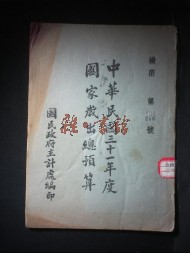 機密 第 號
中華民國三十一年度
國家歲出總預算
國民政府主計處編印